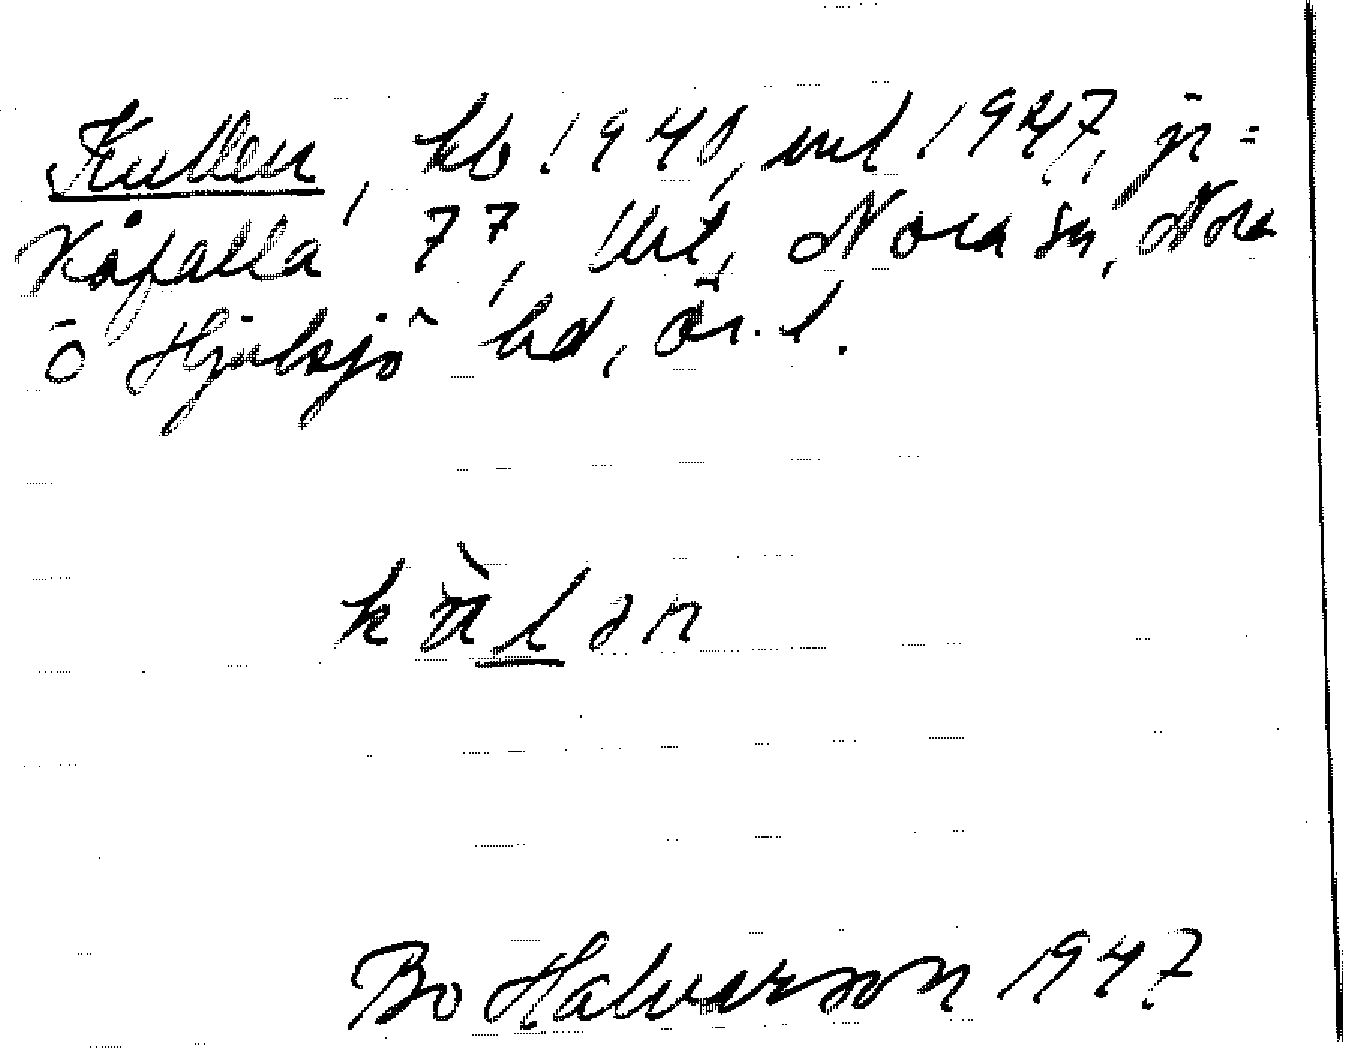 Kullen, kb 1940, uul 1947, jr =
Kåfalla 77, Urt, Nora sn, Nora
o Hjulsjö bd, Ör. l.
kälən
Bo Halvarson 1947